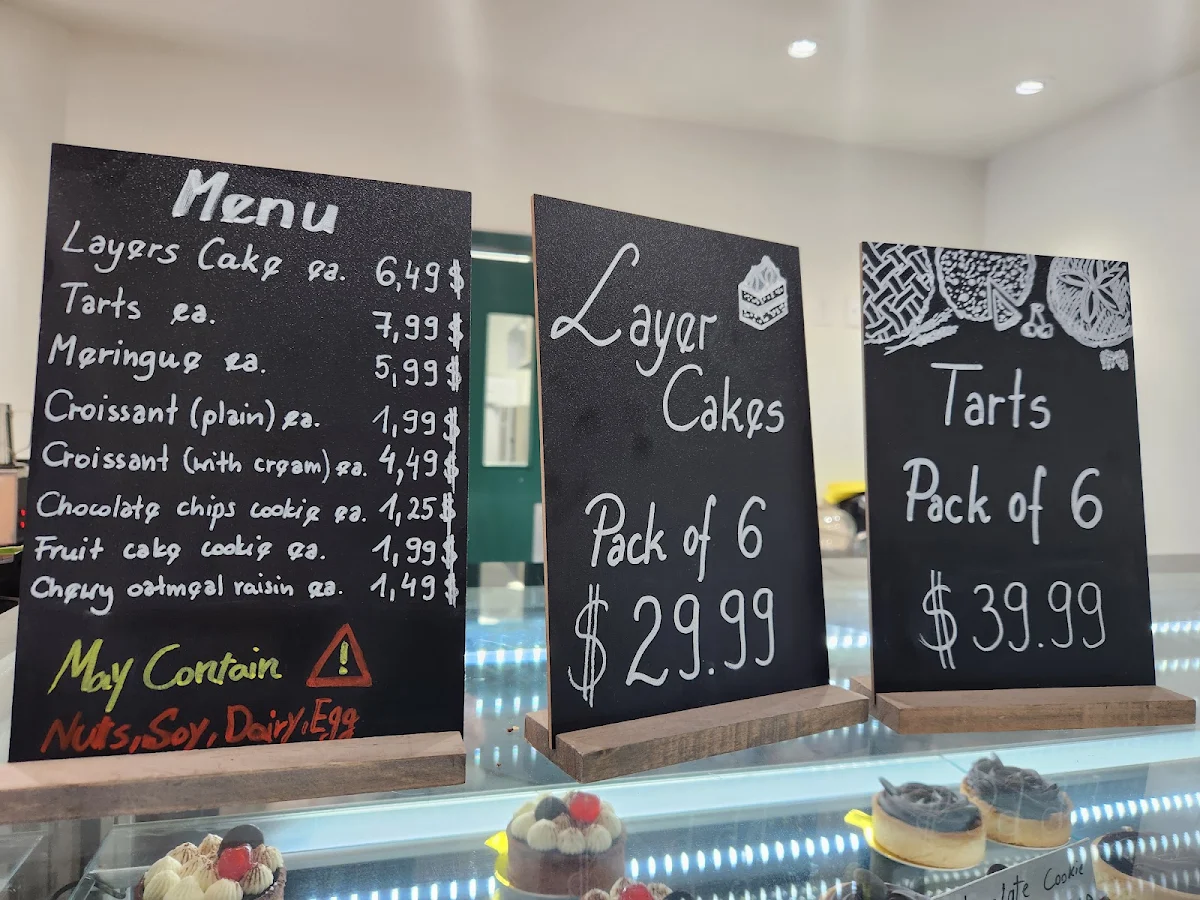 Menu
Layers Cake ea. 6,49$
Tarts ea. 7,99$
Meringue ea. 5,99$
Croissant (plain) ea. 1,99$
Croissant (with cream) ea. 4,49$
Chocolate chips cookie ea. 1,25$
Fruit cake cookie ea. 1,99$
Chewy oatmeal raisin ea. 1,49$
May Contain !
Nuts, Soy, Dairy, Egg
Layer
Cakes
Pack of 6
$29.99
Tarts
Pack of 6
$39.99
Cookie